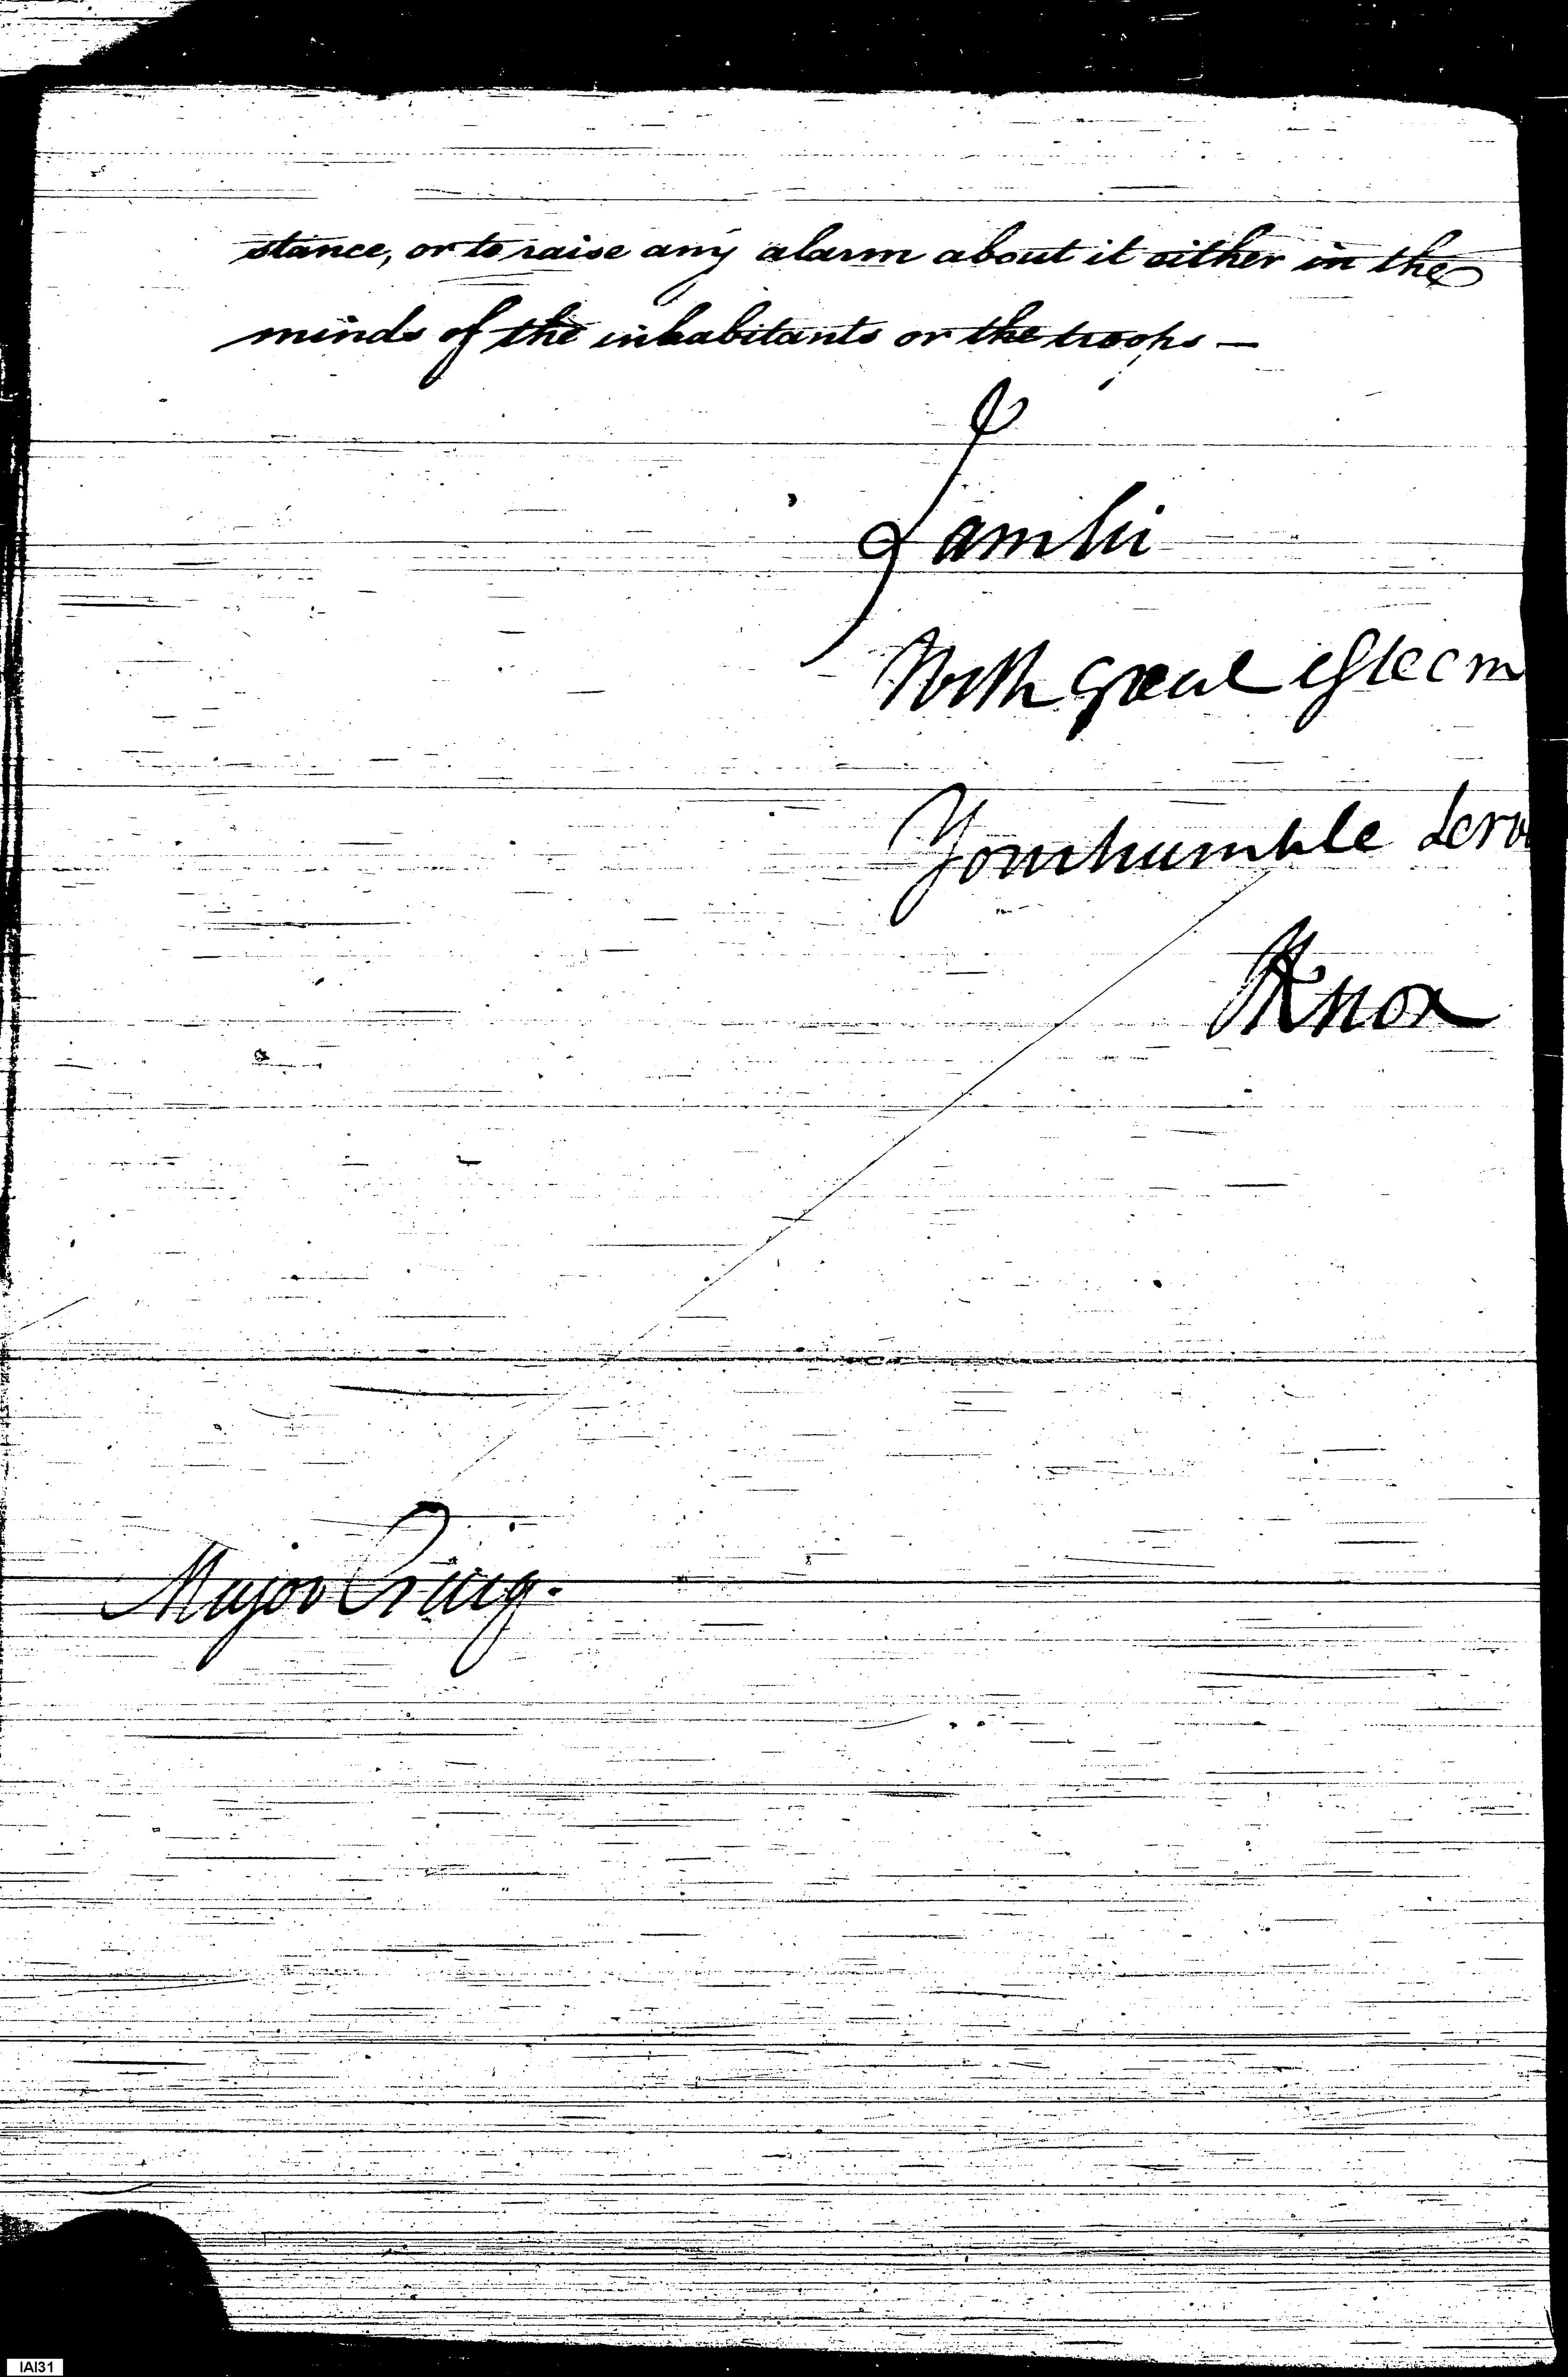 stance, or to raise any alarm about it either in the
minds of the inhabitants or the troops —
I am Sir
With great esteem
Your humble Serv
HKnox
Major Craig.
IAI31